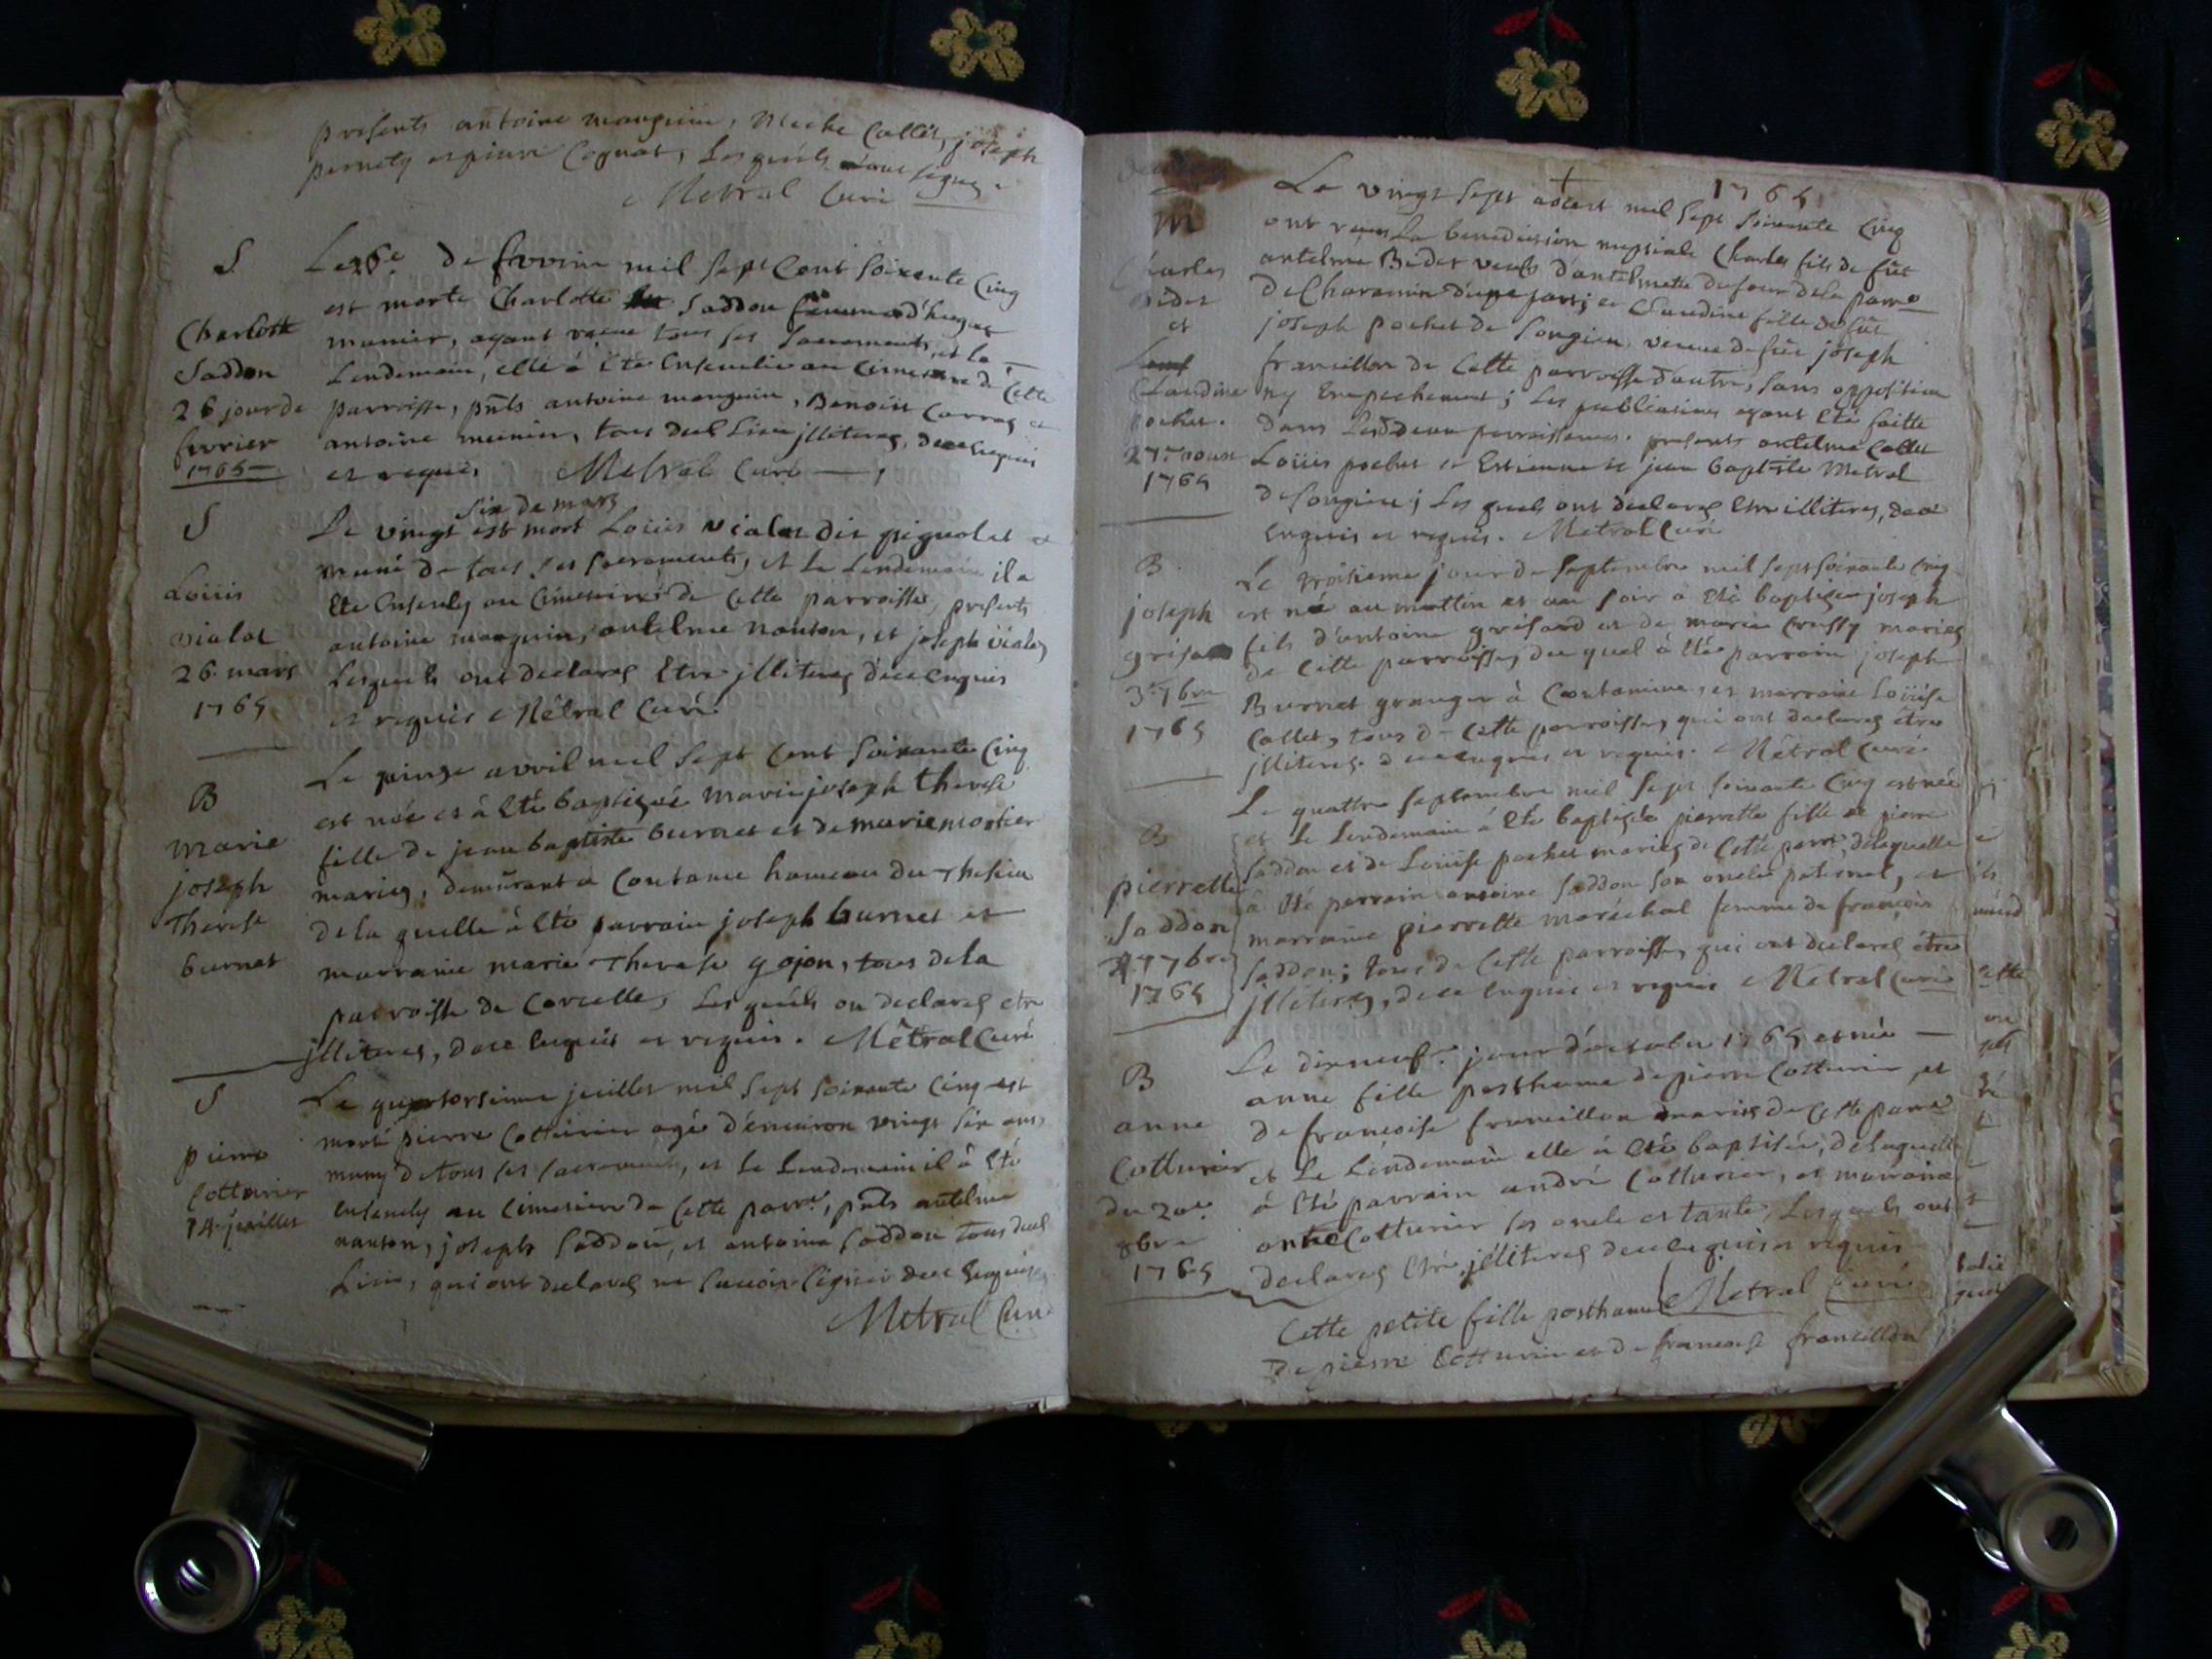 presents antoine manguin, Collet, joseph
pernety et pierre Cognat, Lesquels n'ont signez
Metral Curé
S
Charlotte
Saddon
26 jour de
fevrier
1765
Le 26e de fevrier mil sept Cent soixante Cinq
est morte Charlotte Saddon femme d'hugue
munier, ayant reçue tous ses sacrements, et le
Lendemain, elle à été Ensevelie au Cimetiere de Cette
parroisse, pñts antoine manguin, Benoiit Carraz et
antoine meunier, tous dud Lieu jlliteres, de ce enquis
et requis Metral Curé
S
Loüis
vialat
26 mars
1765
six de mars
Le vingt est mort Loüis vialat dit pignolet et
muni de tous ses sacrements, et le Lendemain il a
ete Ensevely au Cimetiere de Cette parroisse, presents
antoine manguin, antelme nanton, et joseph vialat,
Lesquels ont declarez Etre jlliteres de ce enquis
et requis Métral Curé
B
marie
joseph
Therese
burnet
Le quinze avril mil sept Cent soixante Cinq
est née et à été baptisée marie joseph therese
fille de jean baptiste burnet et de marie mortier
mariez, demeurant a Contamine hameau du Thesieu
de la quelle à été parrain joseph burnet et
marraine marie Therese gojon, tous de la
parroisse de Corcelle, Lesquels on declarez etre
jlliteres, de ce enquis et requis. Métral Curé
S
pierre
Cotturier
14 jeuillet
Le quatorsieme jeuillet mil sept soixante Cinq est
mort pierre Cotturier agé d'environ vingt six ans,
muny de tous ses sacrements, et le Lendemain il à été
Ensevely au Cimetiere de Cette parre, pñts antelme
nanton, joseph Saddon, et antoine Saddon tous dud
Lieu, qui ont declarez ne savoir signer de ce Enquis
Metral Curé
1765
M
Charles
Bidet
et
Claudine
pochet.
27 aoust
1765
Le vingt sept aoust mil sept soixante Cinq
ont reçus La benediction nuptiale Charles fils de fût
antelme Bidet veufs d'antelmette dufour de la parre
de Charancin d'une part; et Claudine fille de fût
joseph pochet de songieu, veuve de fût joseph
francillon de Cette parroisse d'autre, sans opposition
ny Empechement; Les publications ayant été faitte
dans Lesd deux parroisses. presents antelme Collet
Loüis pochet et Estienne et jean baptiste Metral
de songieu; Lesquels ont declarez Etre illiteres, de ce
Enquis et requis. Metral Curé
B
joseph
grisard
3e 7bre
1765
Le troisieme jour de septembre mil sept soixante Cinq
est né au mattin et au soir à été baptisé joseph
fils d'antoine grisard et de marie Crussy mariez
de Cette parroisse, du quel à été parrain joseph
Burnet granger à Contamine, et marraine Loüise
Collet, tous de Cette parroisse, qui ont declarez être
jlliteres. de ce enquis et requis. Métral Curé
B
pierrette
Saddon
4 7bre
1765
Le quattre septembre mil sept soixante Cinq est née
et le Lendemain à été baptisée pierrette fille de pierre
Saddon et de Loüise pochet mariez de Cette parre, de laquelle
à été parrain antoine Saddon son oncle paternel, et
marraine pierrette maréchal femme de françois
Saddon; tous de Cette parroisse, qui ont declarez être
jlliteres, de ce enquis et requis Metral Curé
B
anne
Cotturier
du 20e
8bre
1765
Le dixneufe jour d'octobre 1765 est née
anne fille posthume de pierre Cotturier, et
de françoise francillon mariez de Cette parre
et le Lendemain elle à été baptisée, de laquelle
à été parrain andré Cotturier, et marraine
anne Cotturier ses oncle et tante, Lesquels ont
declarez Etre jlliteres de ce enquis et requis
Metral Curé
Cette petite fille posthume
de pierre Cotturier et de françoise francillon